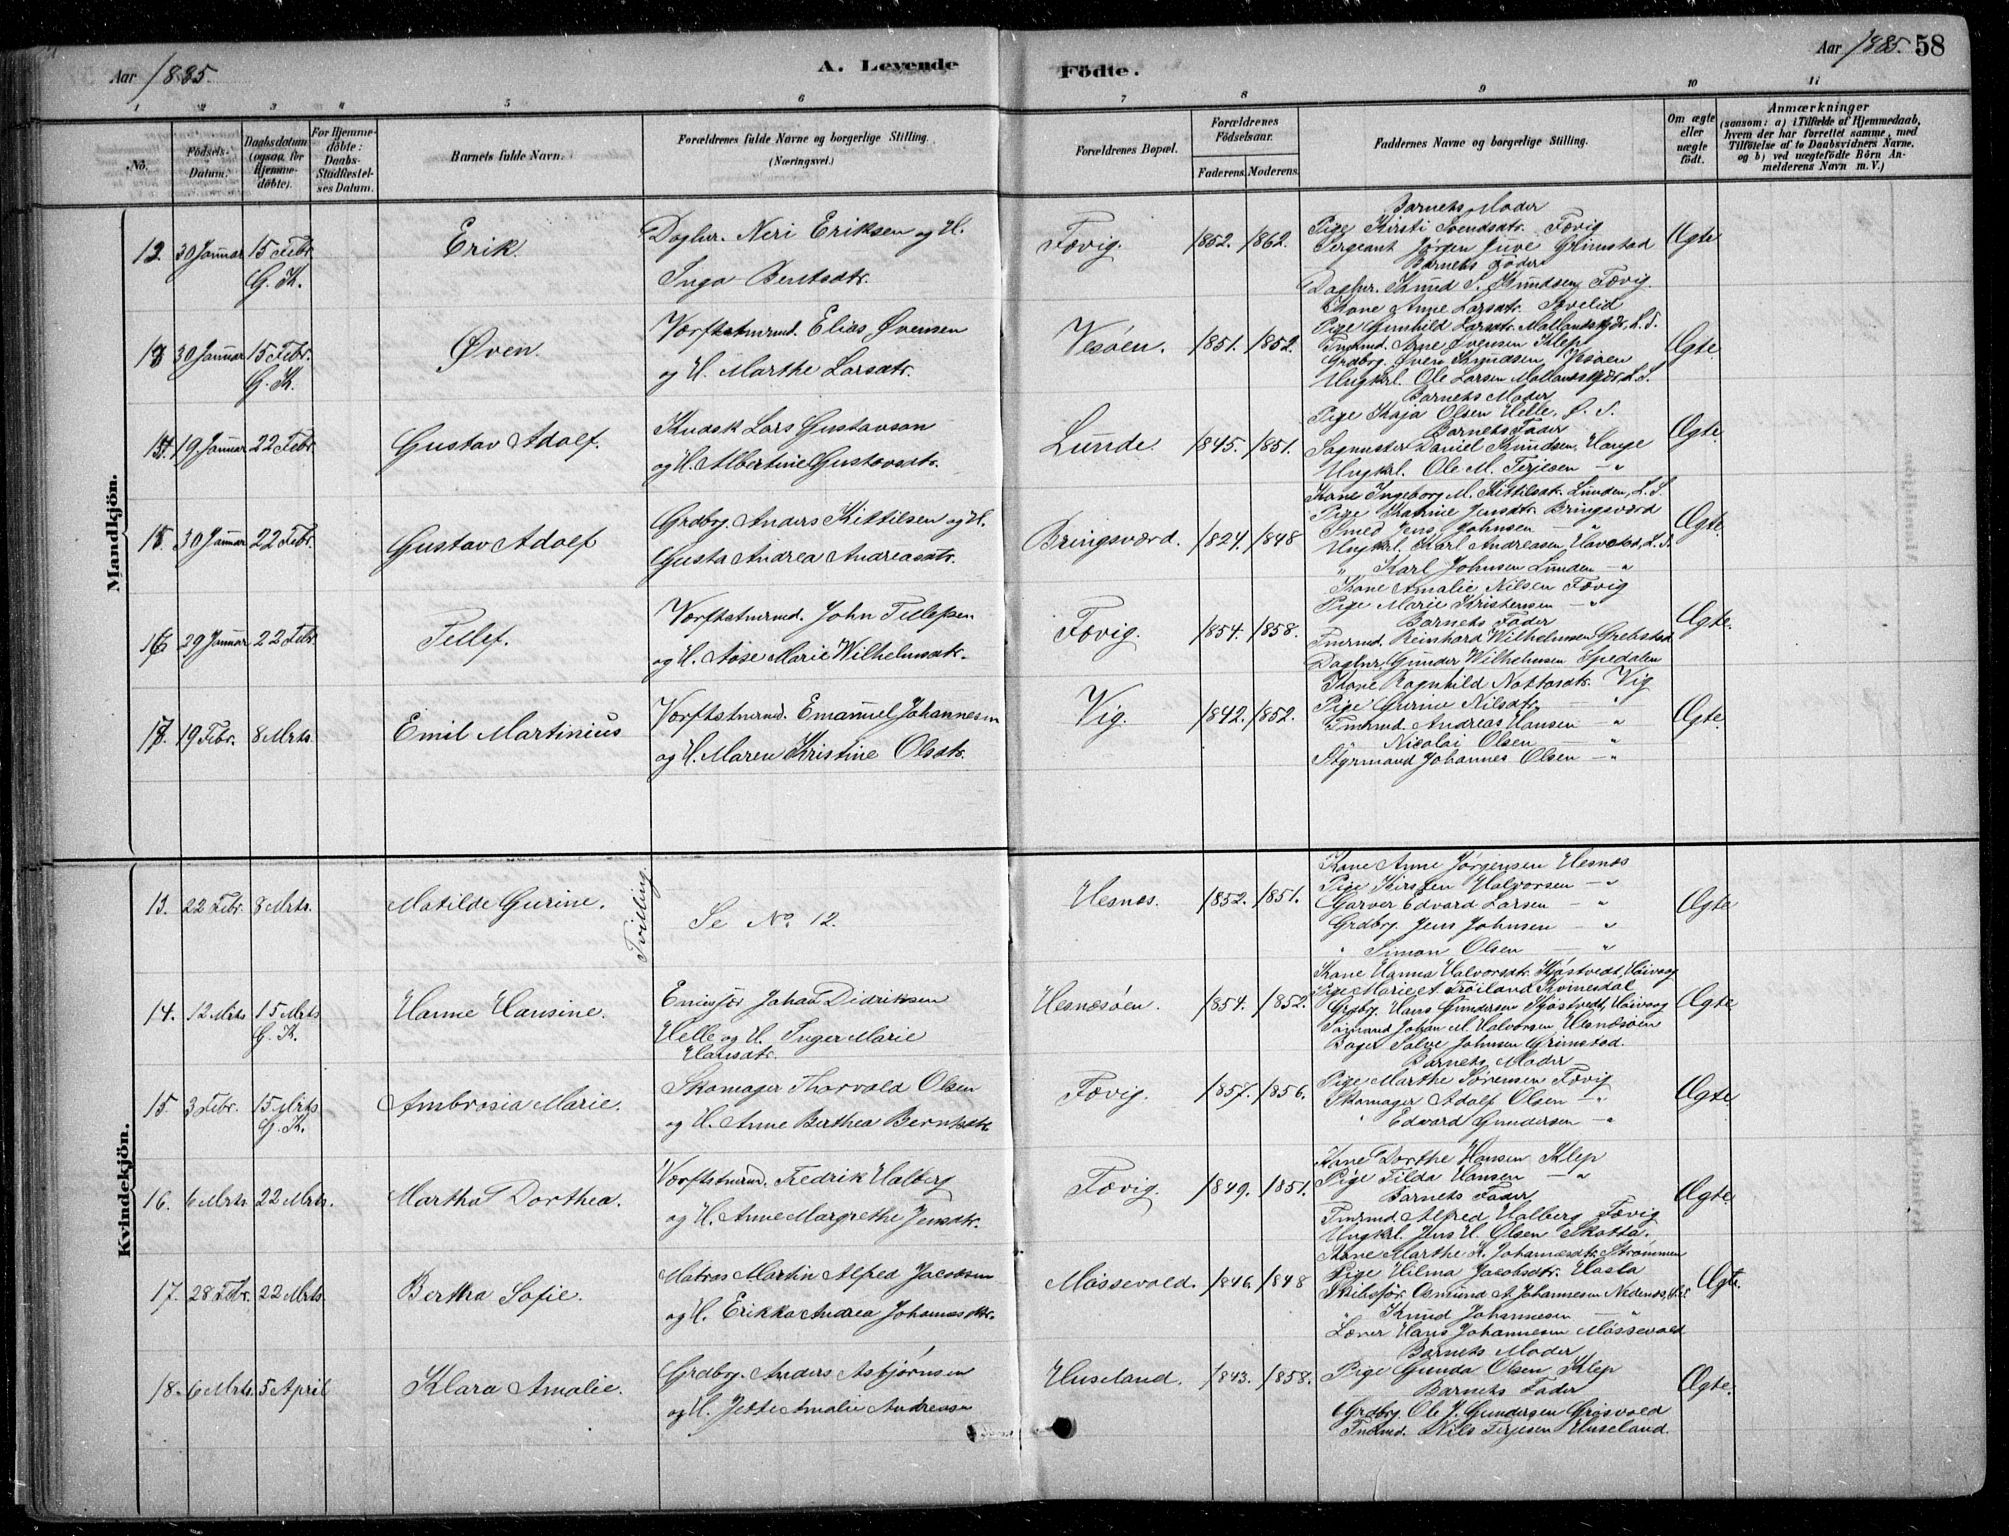 Aar 1885.
A. Levende
Födte.
Aar 1885. 58
1 2 3 4 5 6 7 8 9 10 11
No.
Födsels-Datum.
Daabsdatum (ogsaa for Hjemmedöbte).
For Hjemmedöbte: Daabs-Stadfestelses Datum.
Barnets fulde Navn.
Forældrenes fulde Navne og borgerlige Stilling. (Næringsvei.)
Forældrenes Bopæl.
Forældrenes Födselsaar.
Faderens. Moderens.
Faddernes Navne og borgerlige Stilling.
Om ægte eller uægte födt.
Anmærkninger
(saasom: a) i Tilfælde af Hjemmedaab, hvem der har forrettet samme, med Tilföielse af to Daabsvidners Navne. og b) ved uægtefödte Börn Anmelderens Navn m. V.)
Mandkjön.
12. 30 Januar 15 Febr. G. K. Erik. Daglnr. Neri Eriksen og H.
Inga Bentsdtr.
Fævig. 1852. 1862. Ægte
Barnets Moder
Pige Kirsti Svendsdtr. Fævig
Sergeant Jørgen Juve Grimstad
Barnets Fader
Daglnr. Knud S. Knudsen, Fævig.
13 30 Januar 15 Febr. G. K. Øven. Værftstmrmd. Elias Øvensen
og H. Marthe Larsdtr.
Vesøen. 1851. 1852. Ægte.
Kone Anne Larsdtr.
Pige Gunhild Larsdtr.
Tmrmd. Arne Øvensen Klep
Grdbrg. Øven Knudsen, Vesøen
Ungkrl. Ole Larsen
14. 19 Januar 22 Febr. Gustav Adolf. Kudsk Lars Gustavson
og H. Albertine Gustavsdtr.
Lunde. 1845. 1851. Ægte
Barnets Moder
Pige Kaja Olsen Helle.
Barnets Fader
Sagmester Daniel Knudsen, Hauge
Ungkrl. Ole M. Terjesen — "
15 30 Januar 22 Febr. Gustav Adolf Grdbrg. Anders Kittilsen og H.
Gusta Andrea Andreasdtr.
Bringsværd. 1824. 1848 Ægte.
Kone Ingeborg M. Kittilsdtr. Lunden, L. S.
Pige Kathine Jensdtr. Bringsværd
Smed Jens Johnsen — "
Ungkrl. Karl Andreasen,
" Karl Johnsen Lunden — "
16 29 Januar 22 Febr. Tellef. Værftstmrmd. John Tellefsen
og H. Aase Marie Wilhelmsdtr.
Fævig. 1854. 1858. Ægte.
Kone Amalie Nilsen Fævig
Pige Marie Kristensen — "
Barnets Fader
Tmrmd. Reinhard Wilhelmsen
Daglnr. Gunder Wilhelmsen Spedalen
17. 19 Febr. 8 Mrts. Emil Martinius Værftstmrmd. Emanuel Johannesen
og H. Maren Kristine Olsdtr.
Vig. 1842. 1852. Ægte.
Kone Ragnhild Vig
Pige Gurine Nilsdtr. "
Tmrmd. Andreas Hansen — "
" Nicolai Olsen "
Styrmand Johannes Olsen — "
Kvindekjön.
13. 22 Febr. 8 Mrts. Matilde Gurine. Tvilling. Se No 12.
Hesnæs. 1852. 1851. Ægte
Kone Anne Jørgensen Hesnæs
Pige Kirsten Halvorsen — "
Garver Edvard Larsen — "
Grdbrg. Jens Johnsen — "
" Simon Olsen — "
14. 12 Mrts 15 Mrts G. K. Hanne Hansine. Johan Didriksen
Helle og H. Inger Marie
Hansdtr.
Hesnæsøen. 1854. 1852. Ægte
Kone Hanna Halvorsdtr.
Pige Marie A. Trøiland Kvinesdal
Grdbrg. Hans Gundersen
Sømand Johan M. Halvorsen, Hesnæsøen
Bager Salve Johnsen Grimstad.
15. 3 Febr. 15 Mrts G. K. Ambrosia Marie. Skomager Thorvald Olsen
og H. Anne Berthea Berntsdtr.
Fævig. 1857. 1856. Ægte
Barnets Moder
Pige Marthe Sørensen Fævig
Skomager Adolf Olsen — "
" Edvard Gundersen — "
16. 6 Mrts. 22 Mrts. Martha Dorthea. Værftstmrmd. Fredrik Halberg
og H. Anne Margrethe Jensdtr.
Fævig. 1849. 1851. Ægte
Kone Dorthe Hansen Klep
Pige Tilda Hansen — "
Barnets Fader
Tmrmd. Alfred Halberg Fævig
Ungkrl. Jens H. Olsen
17. 28 Febr. 22 Mrts. Bertha Sofie. Matros Martin Alfred Jacobsen
og H. Erikka Andrea Johannesdtr.
Møssevold. 1846. 1848 Ægte.
Kone Marthe K. Johannesdtr. Strømmen
Pige Hilma Jacobsdtr. Hasla
Skibsfør. Osmund A. Johannesen Nedenæs,
" Knud Johannesen "
Hans Johannesen Møssevold
18. 6 Mrts. 5 April Klara Amalie. Grdbrg. Anders Asbjørnsen
og H. Jette Amalie Andreasen
Huseland. 1843. 1858. Ægte.
Barnets Moder
Pige Gunda Olsen Klep
Barnets Fader
Grdbrg. Ole J. Gundersen
Tmrmd. Nils Terjesen Huseland.